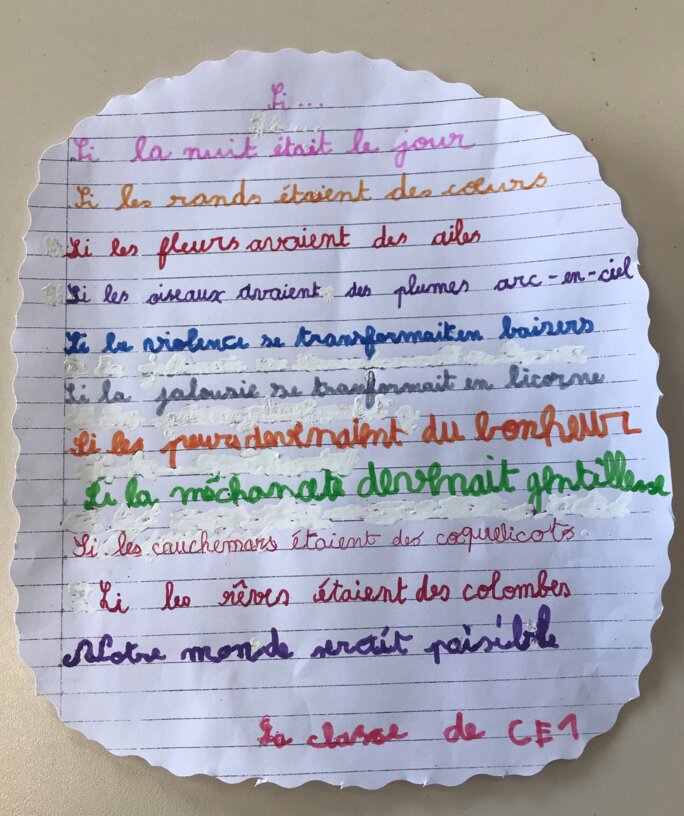 Si...
Si la nuit était le jour
Si les rands étaient des cœurs
Si les fleurs avaient des ailes
Si les oiseaux avaient des plumes arc-en-ciel
Si la violence se transformait en baisers
Si la jalousie se transformait en licorne
Si les peurs devenaient du bonheur
Si la méchanceté devenait gentillesse
Si les cauchemars étaient des coquelicots
Si les rêves étaient des colombes
Notre monde serait paisible
La classe de CE1